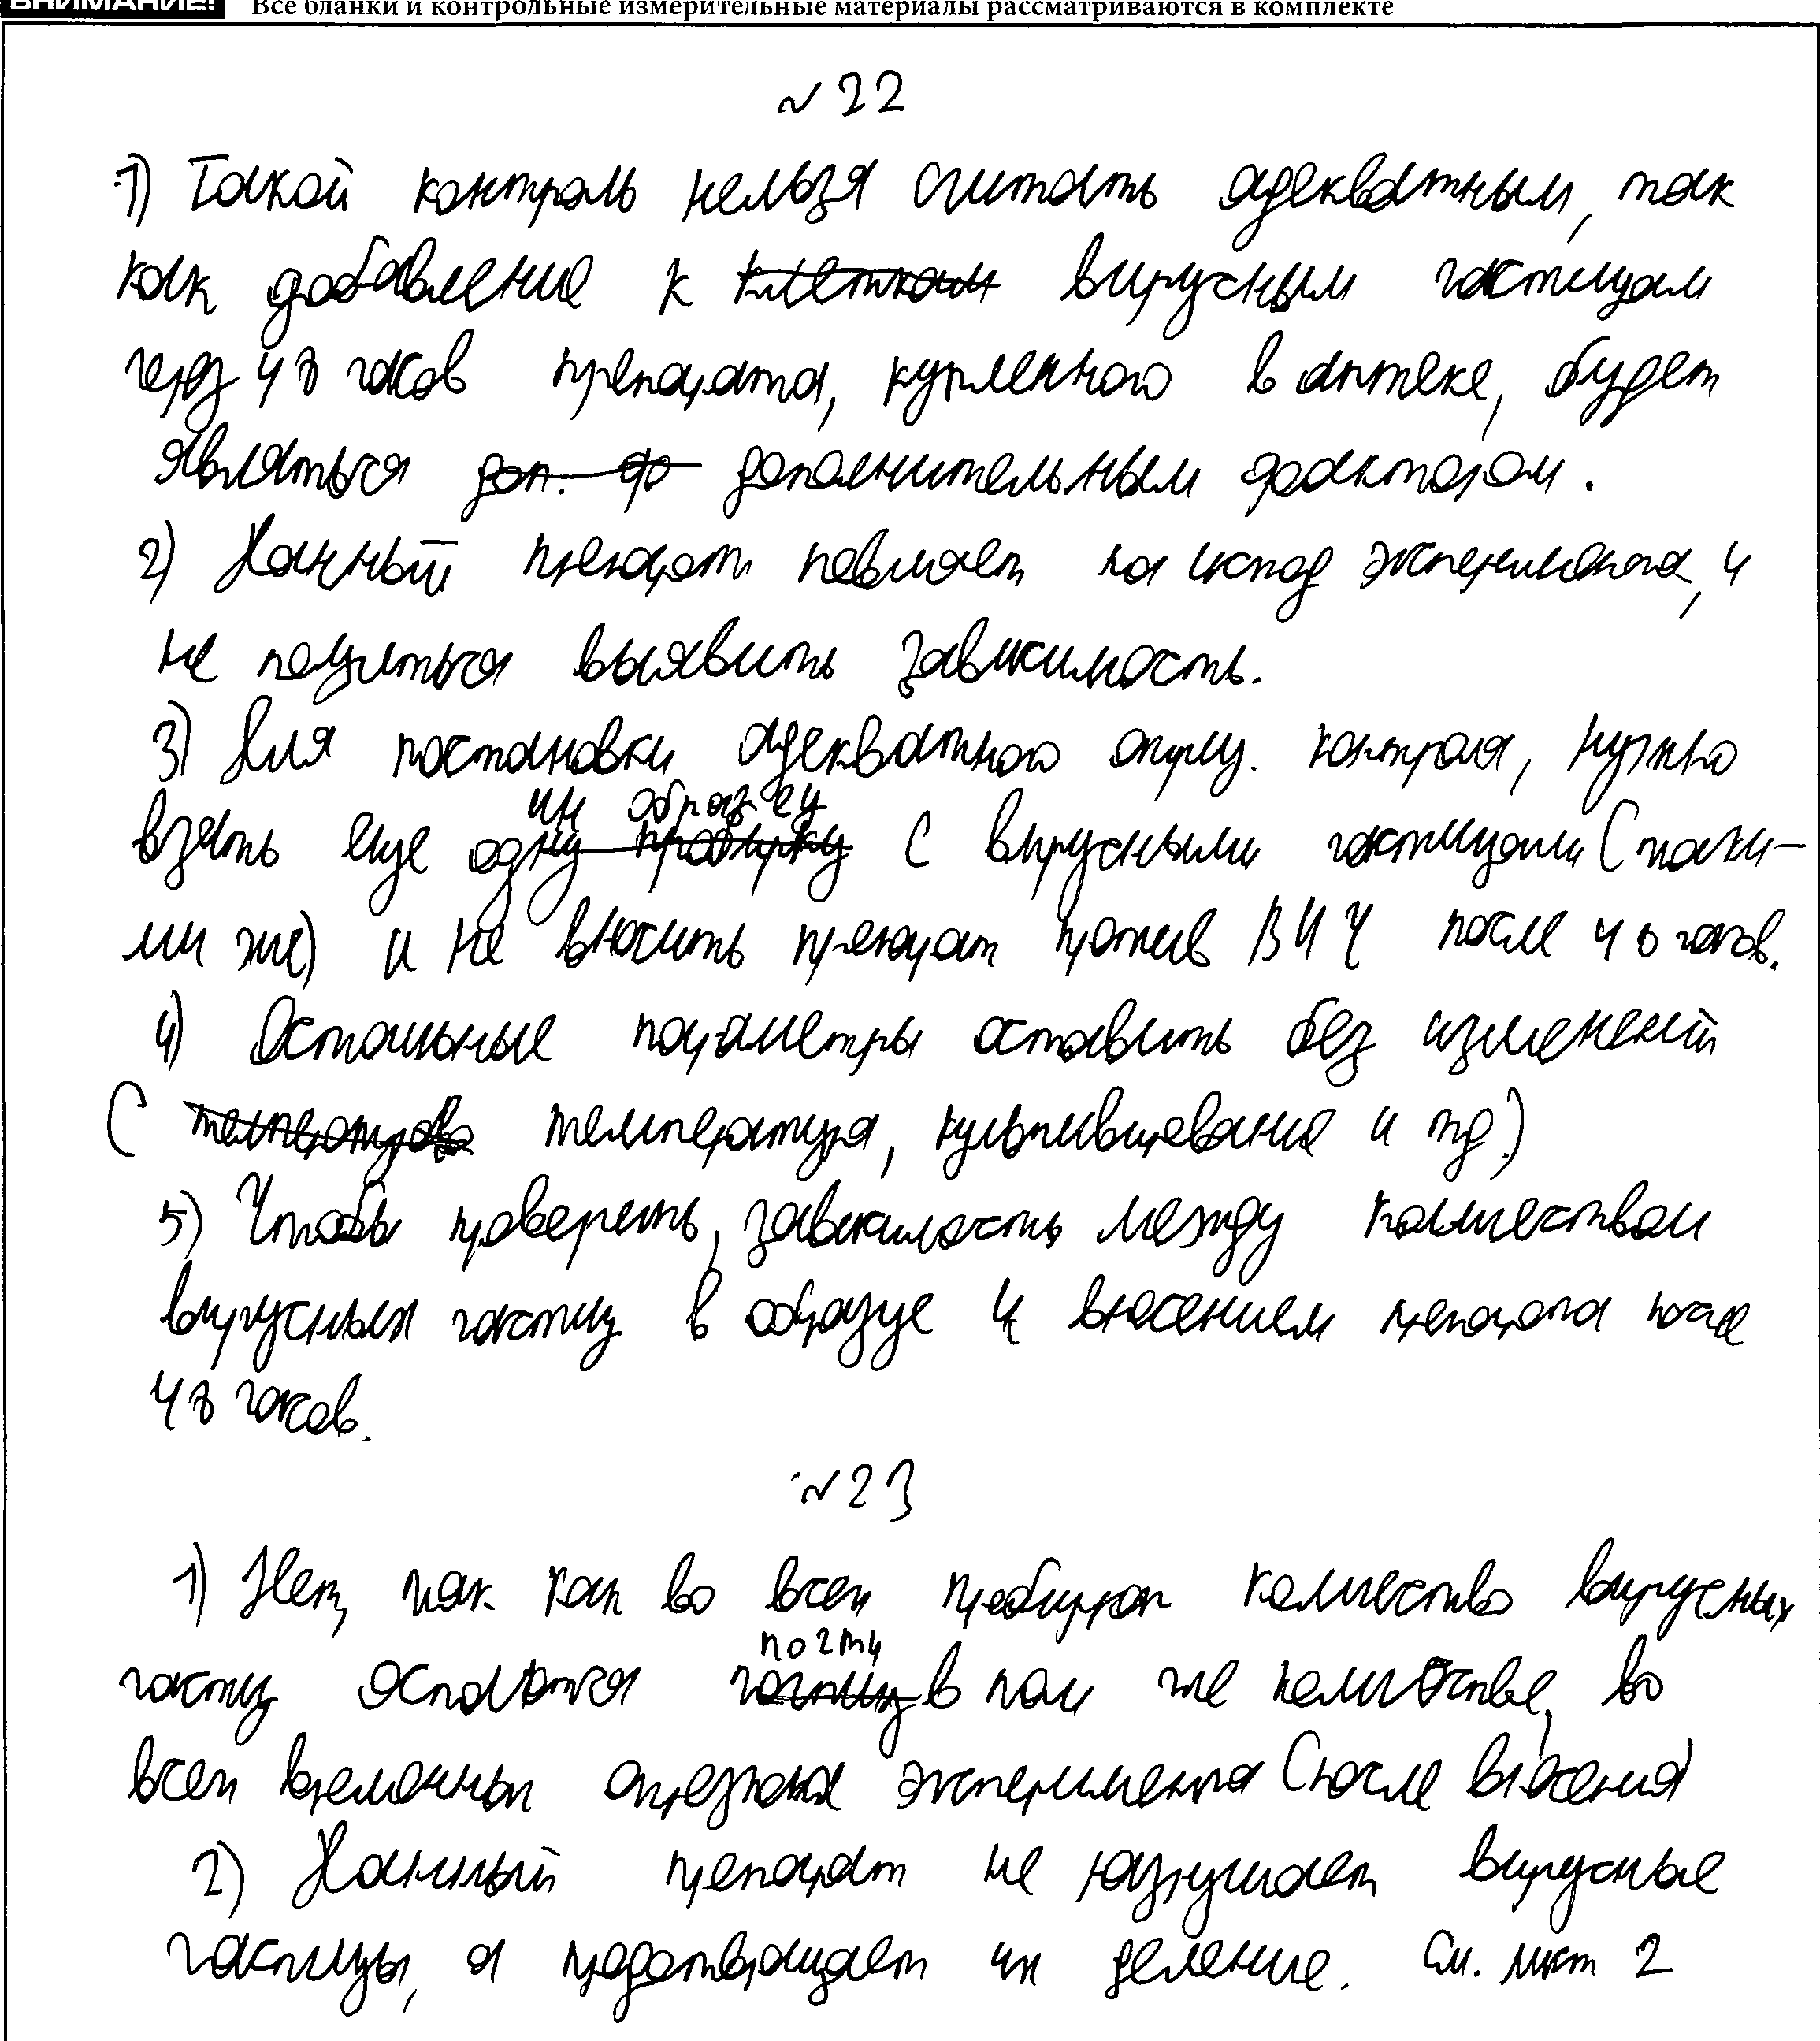 ВНИМАНИЕ! Все бланки и контрольные измерительные материалы рассматриваются в комплекте
№22
1) Такой контроль нельзя считать адекватным, так
как добавление к клеткам вирусным частицам
через 48 часов препарата, купленного в аптеке, будет
являться доп. фа дополнительным фактором.
2) Данный препарат повлияет на исход эксперимента, и
не получиться выявить зависимость.
3) Для постановки адекватного отриц. контроля, нужно
взять еще один образец с вирусными частицами (таки-
ми же) и не вносить препарат против ВИЧ после 48 часов.
4) Остальные параметры оставить без изменений
( температура температура, культивирование и тд.)
5) Чтобы проверить, зависимость между количеством
вирусных частиц в образце и внесением препарата после
48 часов.
№23
1) Нет, так как во всех пробирках количество вирусных
частиц остается почти в том же количестве, во
всех временных отрезках эксперимента (после внесения)
2) Данный препарат не разрушает вирусные
частицы, а предотвращает их деление. См. лист 2